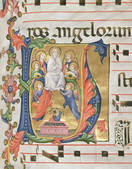 ros angelorum